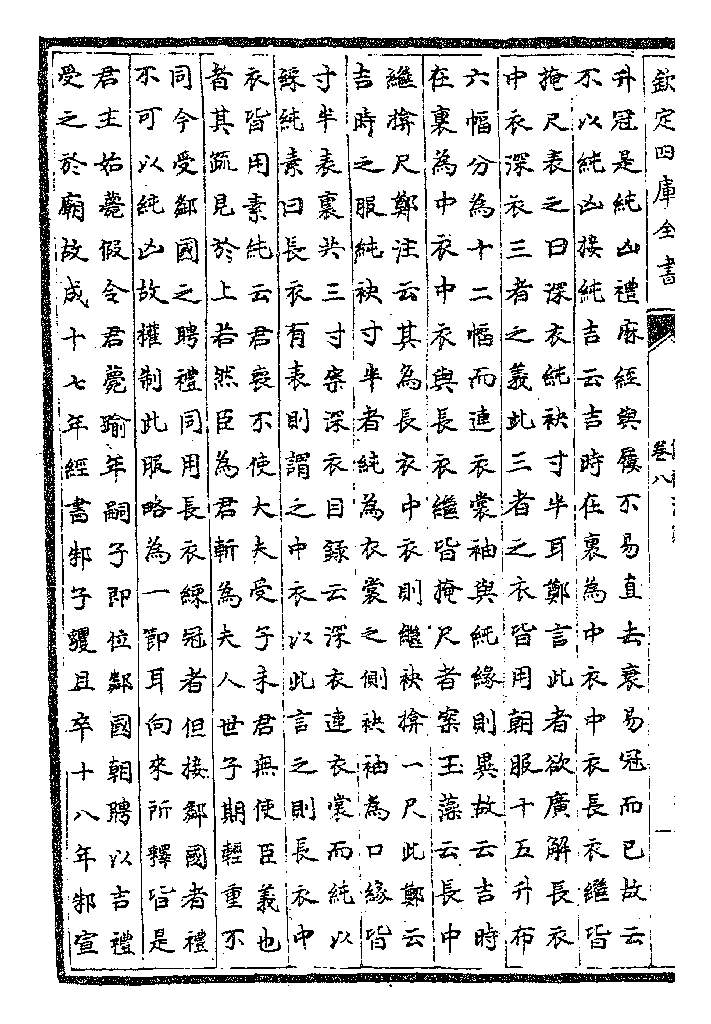 欽定四庫全書
卷八
升冠是純凶禮麻經與屨不易直去衰易冠而已故云
不以純凶接純吉云吉時在裏為中衣中衣長衣繼皆
掩尺表之曰深衣純袂寸半耳鄭言此者欲廣解長衣
中衣深衣三者之義此三者之衣皆用朝服十五升布
六幅分為十二幅而連衣裳袖與純緣則異故云吉時
在裏為中衣中衣與長衣繼皆掩尺者案玉藻云長中
繼揜尺鄭注云其為長衣中衣則繼袂揜一尺此鄭云
吉時之服純袂寸半者純為衣裳之側袂袖為口緣皆
寸半表裏共三寸案深衣目錄云深衣連衣裳而純以
綵純素曰長衣有表則謂之中衣以此言之則長衣中
衣皆用素純云君喪不使大夫受子未君無使臣義也
者其疏見於上若然臣為君斬為夫人世子期輕重不
同今受鄰國之聘禮同用長衣練冠者但接鄰國者禮
不可以純凶故權制此服略為一節耳向來所釋皆是
君主始薨假令君薨踰年嗣子即位鄰國朝聘以吉禮
受之於廟故成十七年經書邾子貜且卒十八年邾宣